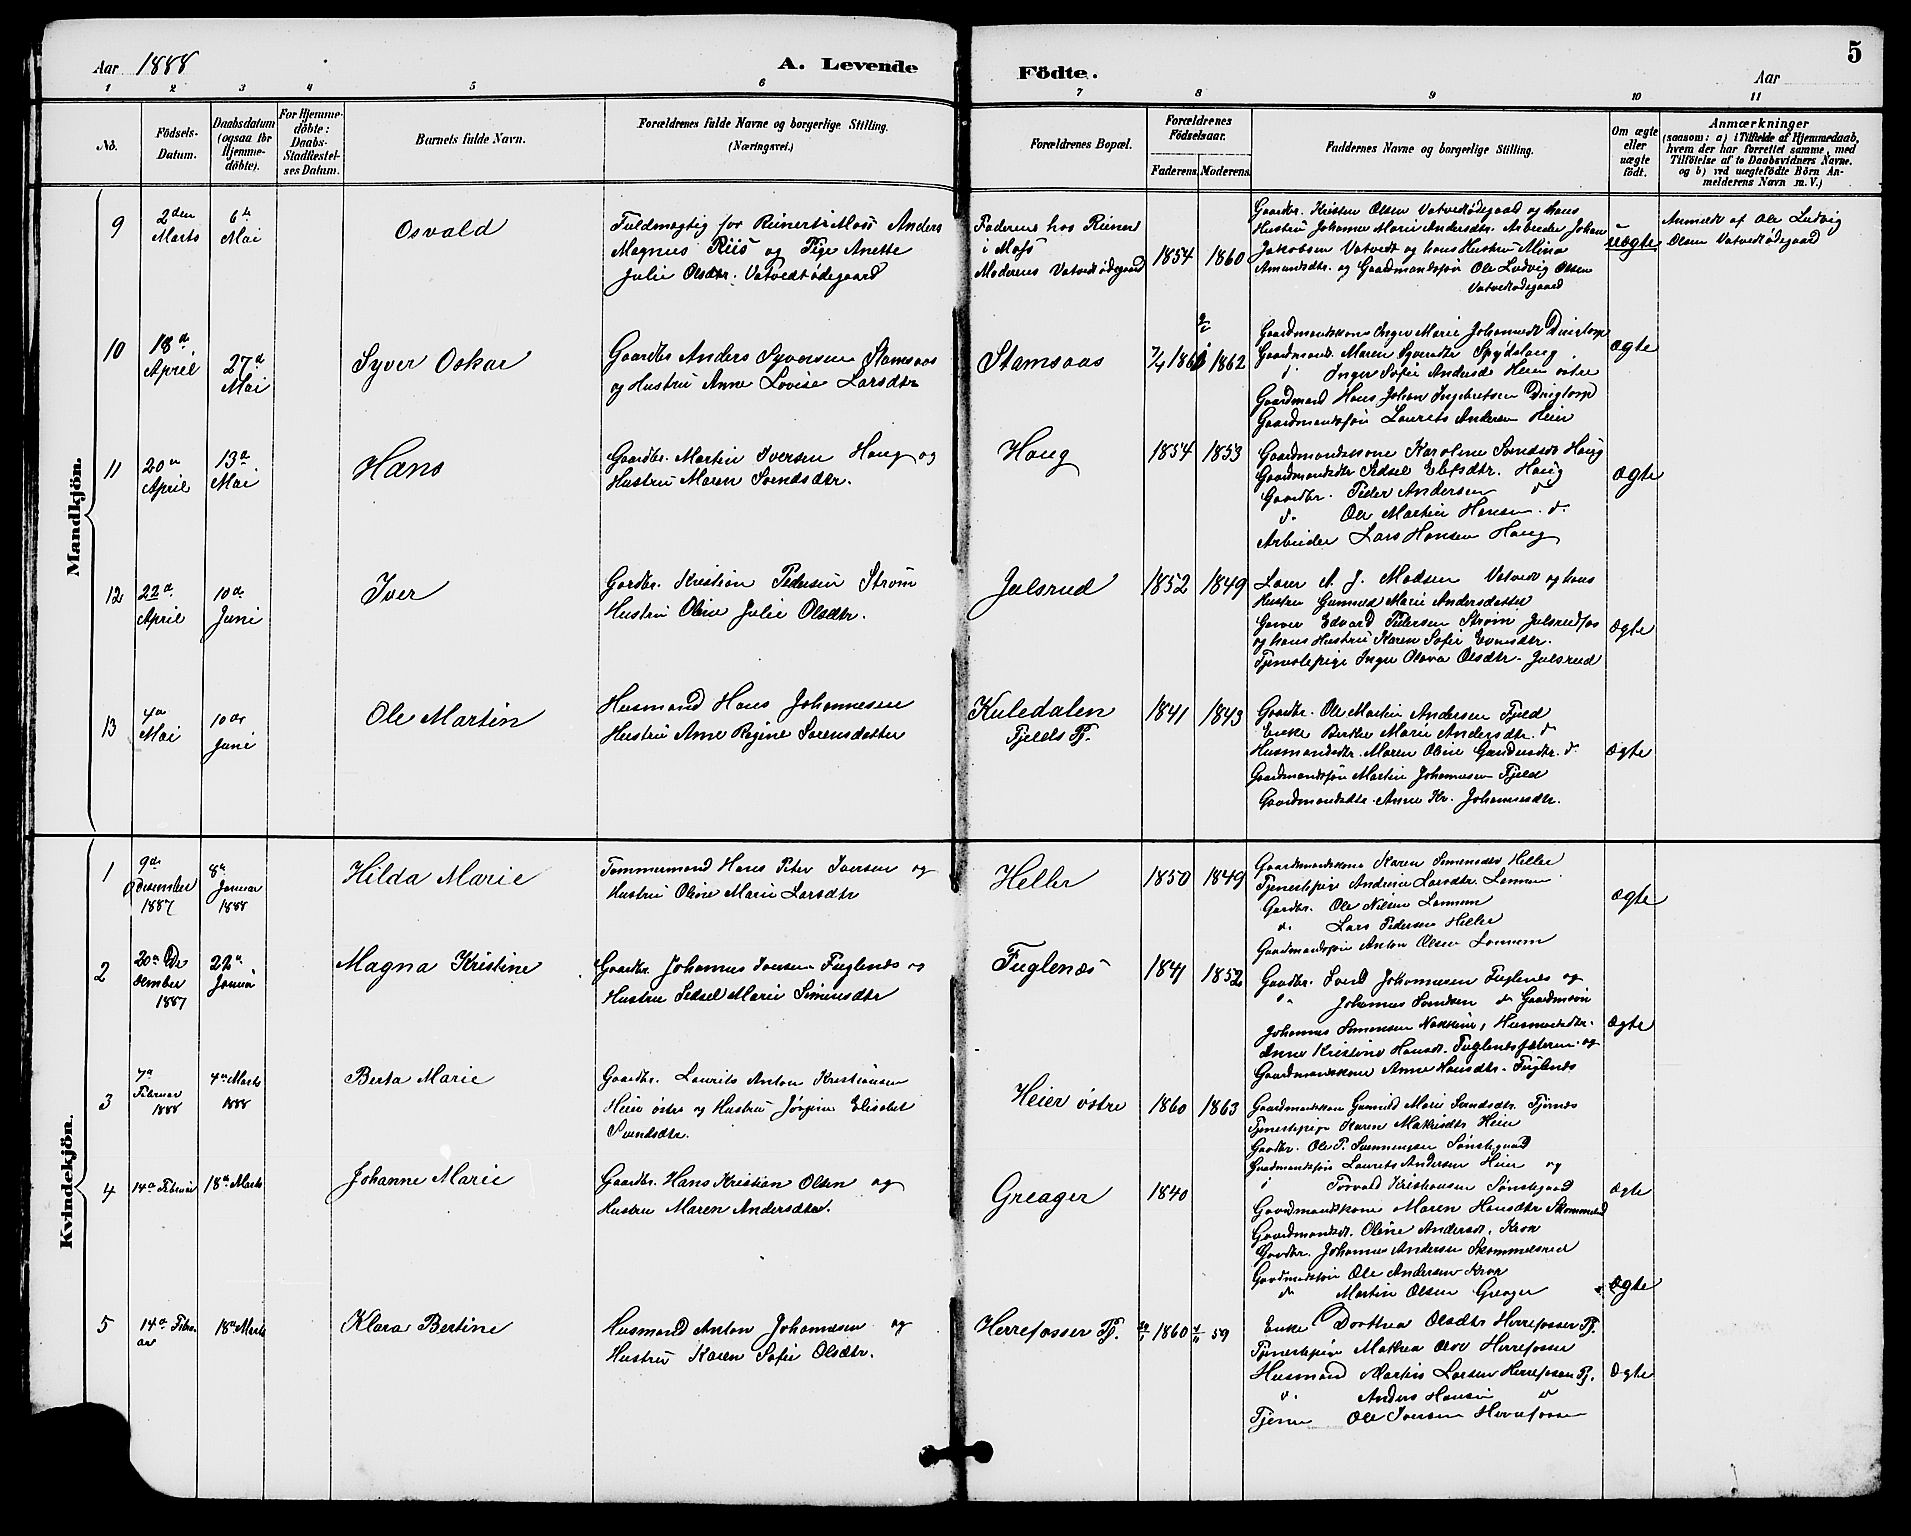 5
Aar 1888
A. Levende Födte.
Aar
1 2 3 4 5 6 7 8 9 10 11
No.
Födsels-Datum.
Daabsdatum (ogsaa for Hjemme-döbte).
For Hjemme-döbte: Daabs-Stadfæstel-ses Datum.
Barnets fulde Navn.
Forældrenes fulde Navne og borgerlige Stilling.
(Næringsvei.)
Forældrenes Bopæl.
Forældrenes Födselsaar.
Faderens. Moderens.
Faddernes Navne og borgerlige Stilling.
Om ægte eller uægte födt.
Anmærkninger
(saasom: a) i Tilfælde af Hjemmedaab,
hvem der har forrettet samme, med
Tilföielse af to Daabsvidners Navne.
og b) ved uægtefödte Börn An-
melderens Navn m. V.)
Mandkjön.
9
2den Marts
6te Mai
Osvald
Fuldmægtig for Reinert i Moss Anders
Magnus Riis og Pige Anette
Julie Olsdtr. Vatvedtødegaard
Faderens hos Reinert
i Moss
Moderens Vatvedtødegaard
1854 1860
Gaardbr. Kristen Olsen Vatvedtødegaard og hans
Hustru Johanne Marie Andersdtr. Arbeider Johan
Jakobsen Vatvedt og hans Hustru Mina
Amundsdtr. og Gaardmandssøn Ole Ludvig Olsen
Vatvedtødegaard
uægte
Anmeldt af Ole Ludvig
Olsen Vatvedtødegaard
10
18de April
27de Mai
Syver Oskar
Gaardbr. Anders Syversen Stamsaas
og Hustru Anne Lovise Larsdtr
Stamsaas
1862
Gaardmandskone Inger Marie Johannesdt
Gaardmandsd. Maren Syversdtr Spydslaug
d. Inger Sofie Andersdt Heier østre
Gaardmand Hans Johan Ingebretsen
Gaardmandssøn Laurits Andersen Heier
ægte
11
20de April
13de Mai
Hans
Gaardbr. Martin Iversen Haug og
Hustru Maren Svendsdtr.
Haug
1854 1853
Gaardmandskone Karoline Svendsdt Haug
Gaardmandsdtr Sidsel Elefsdtr. Haug
Gaardbr. Peder Andersen d
d. Ole Martin Hansen d.
Arbeider Lars Hansen Haug
ægte
12
22de April
10de Juni
Iver
Gardbr. Kristian Pedersen Strøm
Hustru Oline Julie Olsdtr.
Julsrud
1852 1849
Lærer A. J. Madsen Vatvedt og hans
Hustru Gunnild Marie Andersdatter
Garver Edvard Pedersen Strøm
og hans Hustru Karen Sofie Evensdtr.
Tjenestepige Inger Olava Olsdtr. Julsrud
ægte
13
4de Mai
10de Juni
Ole Martin
Husmand Hans Johannesen
Hustru Anne Regine Sørensdatter
Kuledalen
Fjelds Pl.
1841 1843
Gaardbr. Ole Martin Andersen Fjeld
Enke Berthe Marie Andersdtr. d
Husmandsdtr. Maren Oline d
Gaardmandssøn Martin Johannesen Fjeld
Gaardmandsdtr. Anne Kr. Johannesdtr.
ægte
Kvindekjön.
1
9de Desember 1887
8de Januar 1888
Hilda Marie
Tømmermand Hans Peter Iversen og
Hustru Oline Marie Larsdtr
Heller
1850 1849
Gaardmandskone Karen Simensdtr Heller
Tjenestepige Andrine Larsdtr. Lommen
Gardbr. Ole Nilsen Lommen
d. Lars Pedersen Heller
Gaardmandssøn Anton Olsen Lommen
ægte
2
20de Desember 1887
22de Januar
Magna Kristine
Gaardbr. Johannes Iversen Fuglenæs og
Hustru Sidsel Marie Simensdtr
Fuglenæs
1841 1852
Gaardbr. Svend Johannesen Fuglenæs og
Johannes Svendsen d Gaardmsøn
Johannes Simensen
Anne Kristine Hansdt.
Gaardmandskone Anne Hansdtr. Fuglenæs
ægte
3
7de Februar 1888
4de Marts 1888
Berta Marie
Gaardbr. Laurits Anton Kristiansen
Heier østre og Hustru Jørgine Elisabet
Svendsdtr.
Heier østre
1860 1863
Gaardmandskone Gunnild Marie Svendsdtr. Tjernæs
Tjenestepige Karen Mathisdtr Heier
Gardbr. Ole P. Svenningsen Sønstegaard
Gaardmandssøn Laurits Andersen Heier og
Torvald Kristiansen Sønstegaard
ægte
4
14de Februar
18de Marts
Johanne Marie
Gaardbr. Hans Kristian Olsen og
Hustru Maren Andersdtr.
Greager
1840
Gaardmandskone Maren Hansdtr Skammelsrud
Gaardmandsdt. Oline Andersdt. Krok
Gardbr. Johannes Andersen Skammelsrud
Gaardmandssøn Ole Andersen Krok
d. Martin Olsen Greager
ægte
5
14de Februar
18de Marts
Klara Bertine
Husmand Anton Johannesen og
Hustru Karen Sofie Olsdtr.
Herrefosser Pl.
1860 59
Enke Dorthea Olsdtr Herrefosser Pl.
Tjenestepige Mathea Herrefosser
Husmand Martin Larsen Herrefosser Pl.
d. Anders Hansen d
Tjener Ole Iversen Herrefosser
ægte